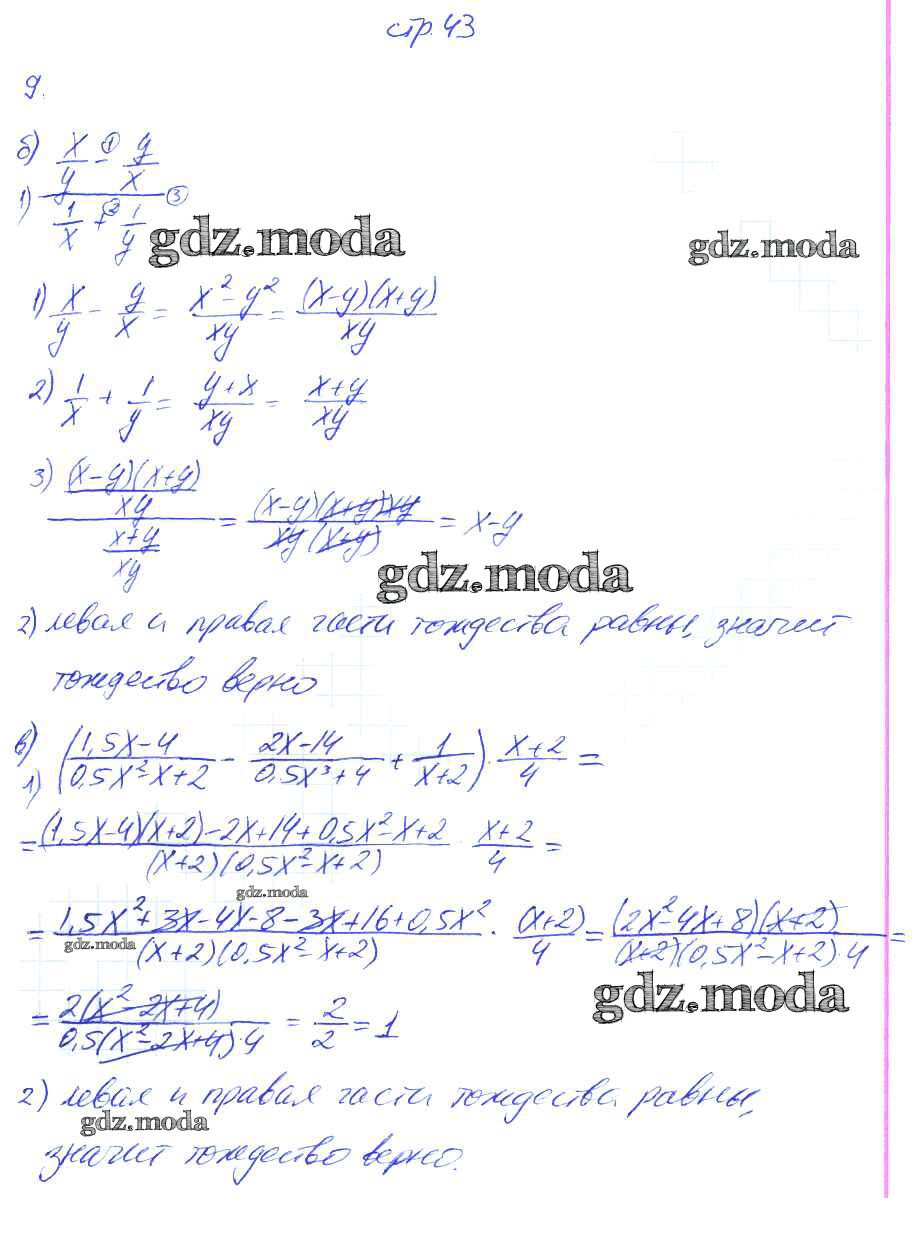 стр. 43
9.
б) x/y - ① y/x
1) ─── ③
1/x + ② 1/y
gdz.moda gdz.moda
1) x/y - y/x = (x² - y²)/xy = (x-y)(x+y)/xy
2) 1/x + 1/y = (y+x)/xy = (x+y)/xy
3) ((x-y)(x+y)/xy)/((x+y)/xy) = (x-y)(x+y)xy/xy(x+y) = x-y
gdz.moda
2) левая и правая части тождества равны, значит
тождество верно
в)
1) ((1,5x-4)/(0,5x²-x+2) - (2x-14)/(0,5x³+4) + 1/(x+2)) · (x+2)/4 =
= ((1,5x-4)(x+2)-2x+14+0,5x²-x+2)/((x+2)(0,5x²-x+2)) · (x+2)/4 =
gdz.moda
= (1,5x²+3x-4x-8-3x+16+0,5x²)/((x+2)(0,5x²-x+2)) · (x+2)/4 = (2x²-4x+8)(x+2)/((x+2)(0,5x²-x+2)·4) =
gdz.moda
gdz.moda
= 2(x²-2x+4)/(0,5(x²-2x+4)·4) = 2/2 = 1
2) левая и правая части тождества равны,
gdz.moda
значит тождество верно.